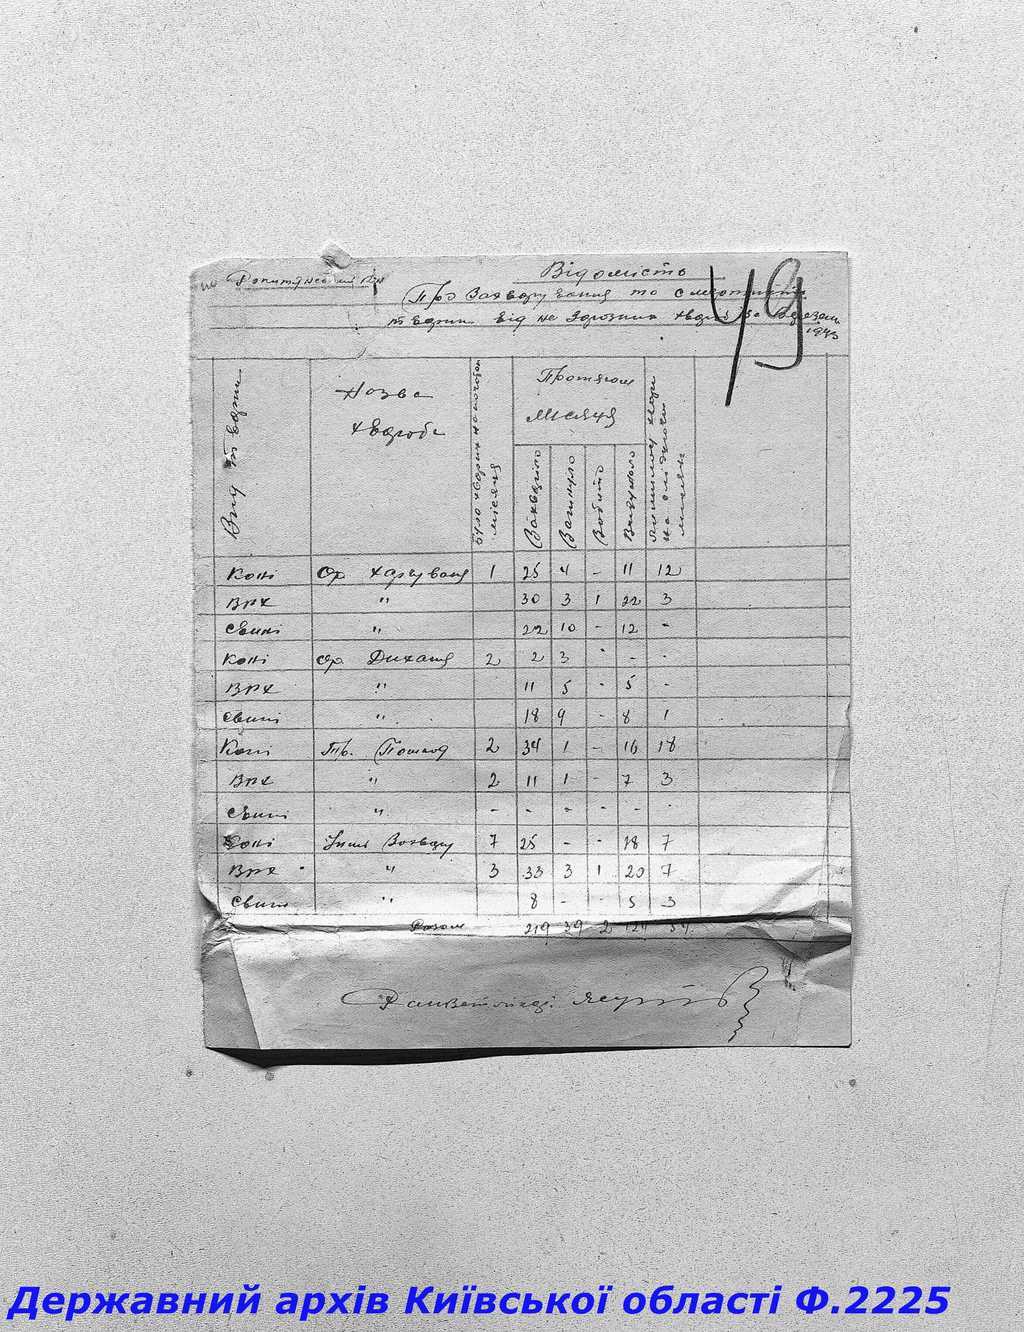 по Рокитянський Р-н
Відомість
49
Про Захворування та смертність
тварин від не заразних хвороб за Березень
1943
Вид тварин
Назва
хвороб
Було хворих на початок
місяця
Протягом
місяця
Захворіло
Загинуло
Забито
Видужало
на слідуючий
місяць
Коні Ор харчуваня 1 25 4 - 11 12
ВРХ " 30 3 1 22 3
Свині " 22 10 - 12 -
Коні Ор. Диханя 2 2 3 - - -
ВРХ " 11 5 - 5 -
Свині " 18 9 - 8 1
Коні Тр. Пошкод 2 34 1 - 16 18
ВРХ " 2 11 1 - 7 3
Свині " - - - - - -
Коні Інші Захвору 7 25 - - 18 7
ВРХ " 3 33 3 1 20 7
Свині " 8 - - 5 3
Разом 219 39 2 124 54
Державний архів Київської області Ф.2225